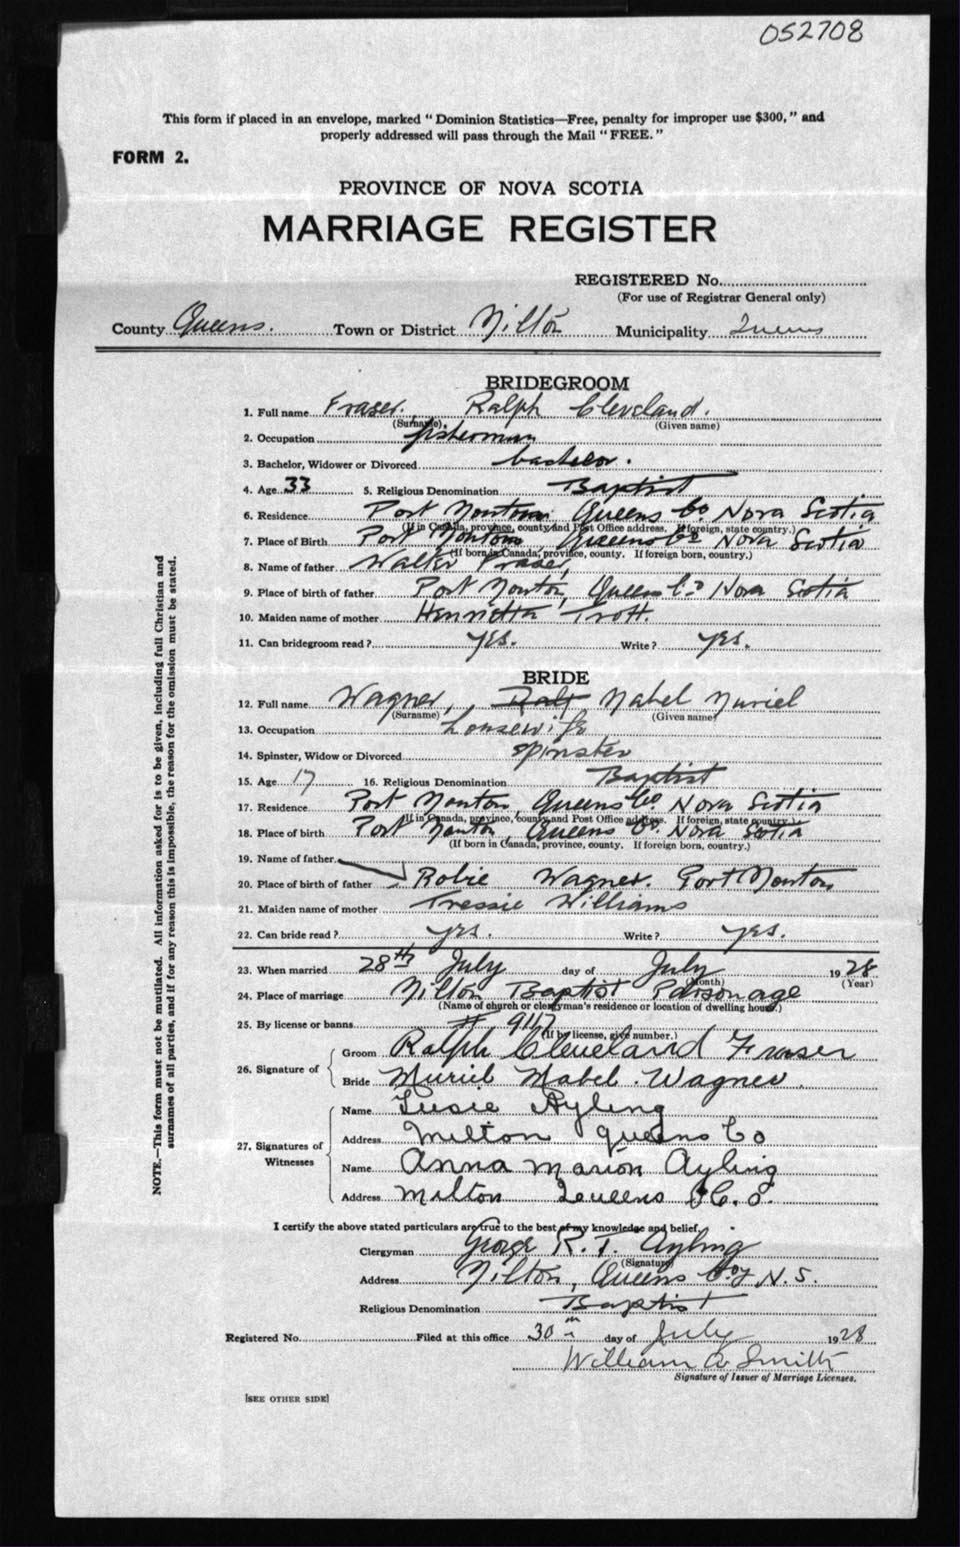 052708
This form if placed in an envelope, marked "Dominion Statistics—Free, penalty for improper use $300," and
properly addressed will pass through the Mail "FREE."
FORM 2.
PROVINCE OF NOVA SCOTIA
MARRIAGE REGISTER
REGISTERED No.
(For use of Registrar General only)
County Queens. Town or District Milton Municipality Queens
BRIDEGROOM
1. Full name Fraser. Ralph Cleveland.
(Surname) (Given name)
2. Occupation fisherman
3. Bachelor, Widower or Divorced bachelor.
4. Age 33 5. Religious Denomination Baptist
6. Residence Port Mouton Queens Co Nova Scotia
(If in Canada, province, county and Post Office address. If foreign, state country.)
7. Place of Birth Port Mouton Queens Co Nova Scotia
(If born in Canada, province, county. If foreign born, country.)
8. Name of father Walter Fraser,
9. Place of birth of father Port Mouton, Queens Co Nova Scotia
10. Maiden name of mother Henrietta Trott.
11. Can bridegroom read? yes. Write? yes.
BRIDE
12. Full name Wagner, Mabel Muriel
(Surname) (Given name)
13. Occupation housewife
14. Spinster, Widow or Divorced spinster
15. Age 17 16. Religious Denomination Baptist
17. Residence Port Mouton, Queens Co. Nova Scotia
(If in Canada, province, county and Post Office address. If foreign, state country.)
18. Place of birth Port Mouton, Queens Co. Nova Scotia
(If born in Canada, province, county. If foreign born, country.)
19. Name of father
20. Place of birth of father Robie Wagner. Port Mouton
21. Maiden name of mother Tressie Williams
22. Can bride read? yes. Write? yes.
23. When married 28th July day of July 1928
(Month) (Year)
24. Place of marriage Milton Baptist Parsonage
(Name of church or clergyman's residence or location of dwelling house.)
25. By license or banns # 9117
(If by license, give number.)
26. Signature of
Groom Ralph Cleveland Fraser
Bride Muriel Mabel Wagner.
27. Signatures of Witnesses
Name Susie Ayling
Address Milton Queens Co
Name Anna Marion Ayling
Address Milton Queens Co.
I certify the above stated particulars are true to the best of my knowledge and belief.
Clergyman George R. T. Ayling
(Signature)
Address Milton, Queens Coy N.S.
Religious Denomination Baptist
Registered No. Filed at this office 30th day of July 1928
William A Smith
Signature of Issuer of Marriage Licenses.
[SEE OTHER SIDE]
NOTE.—This form must not be mutilated. All information asked for is to be given, including full Christian and
surnames of all parties, and if for any reason this is impossible, the reason for the omission must be stated.